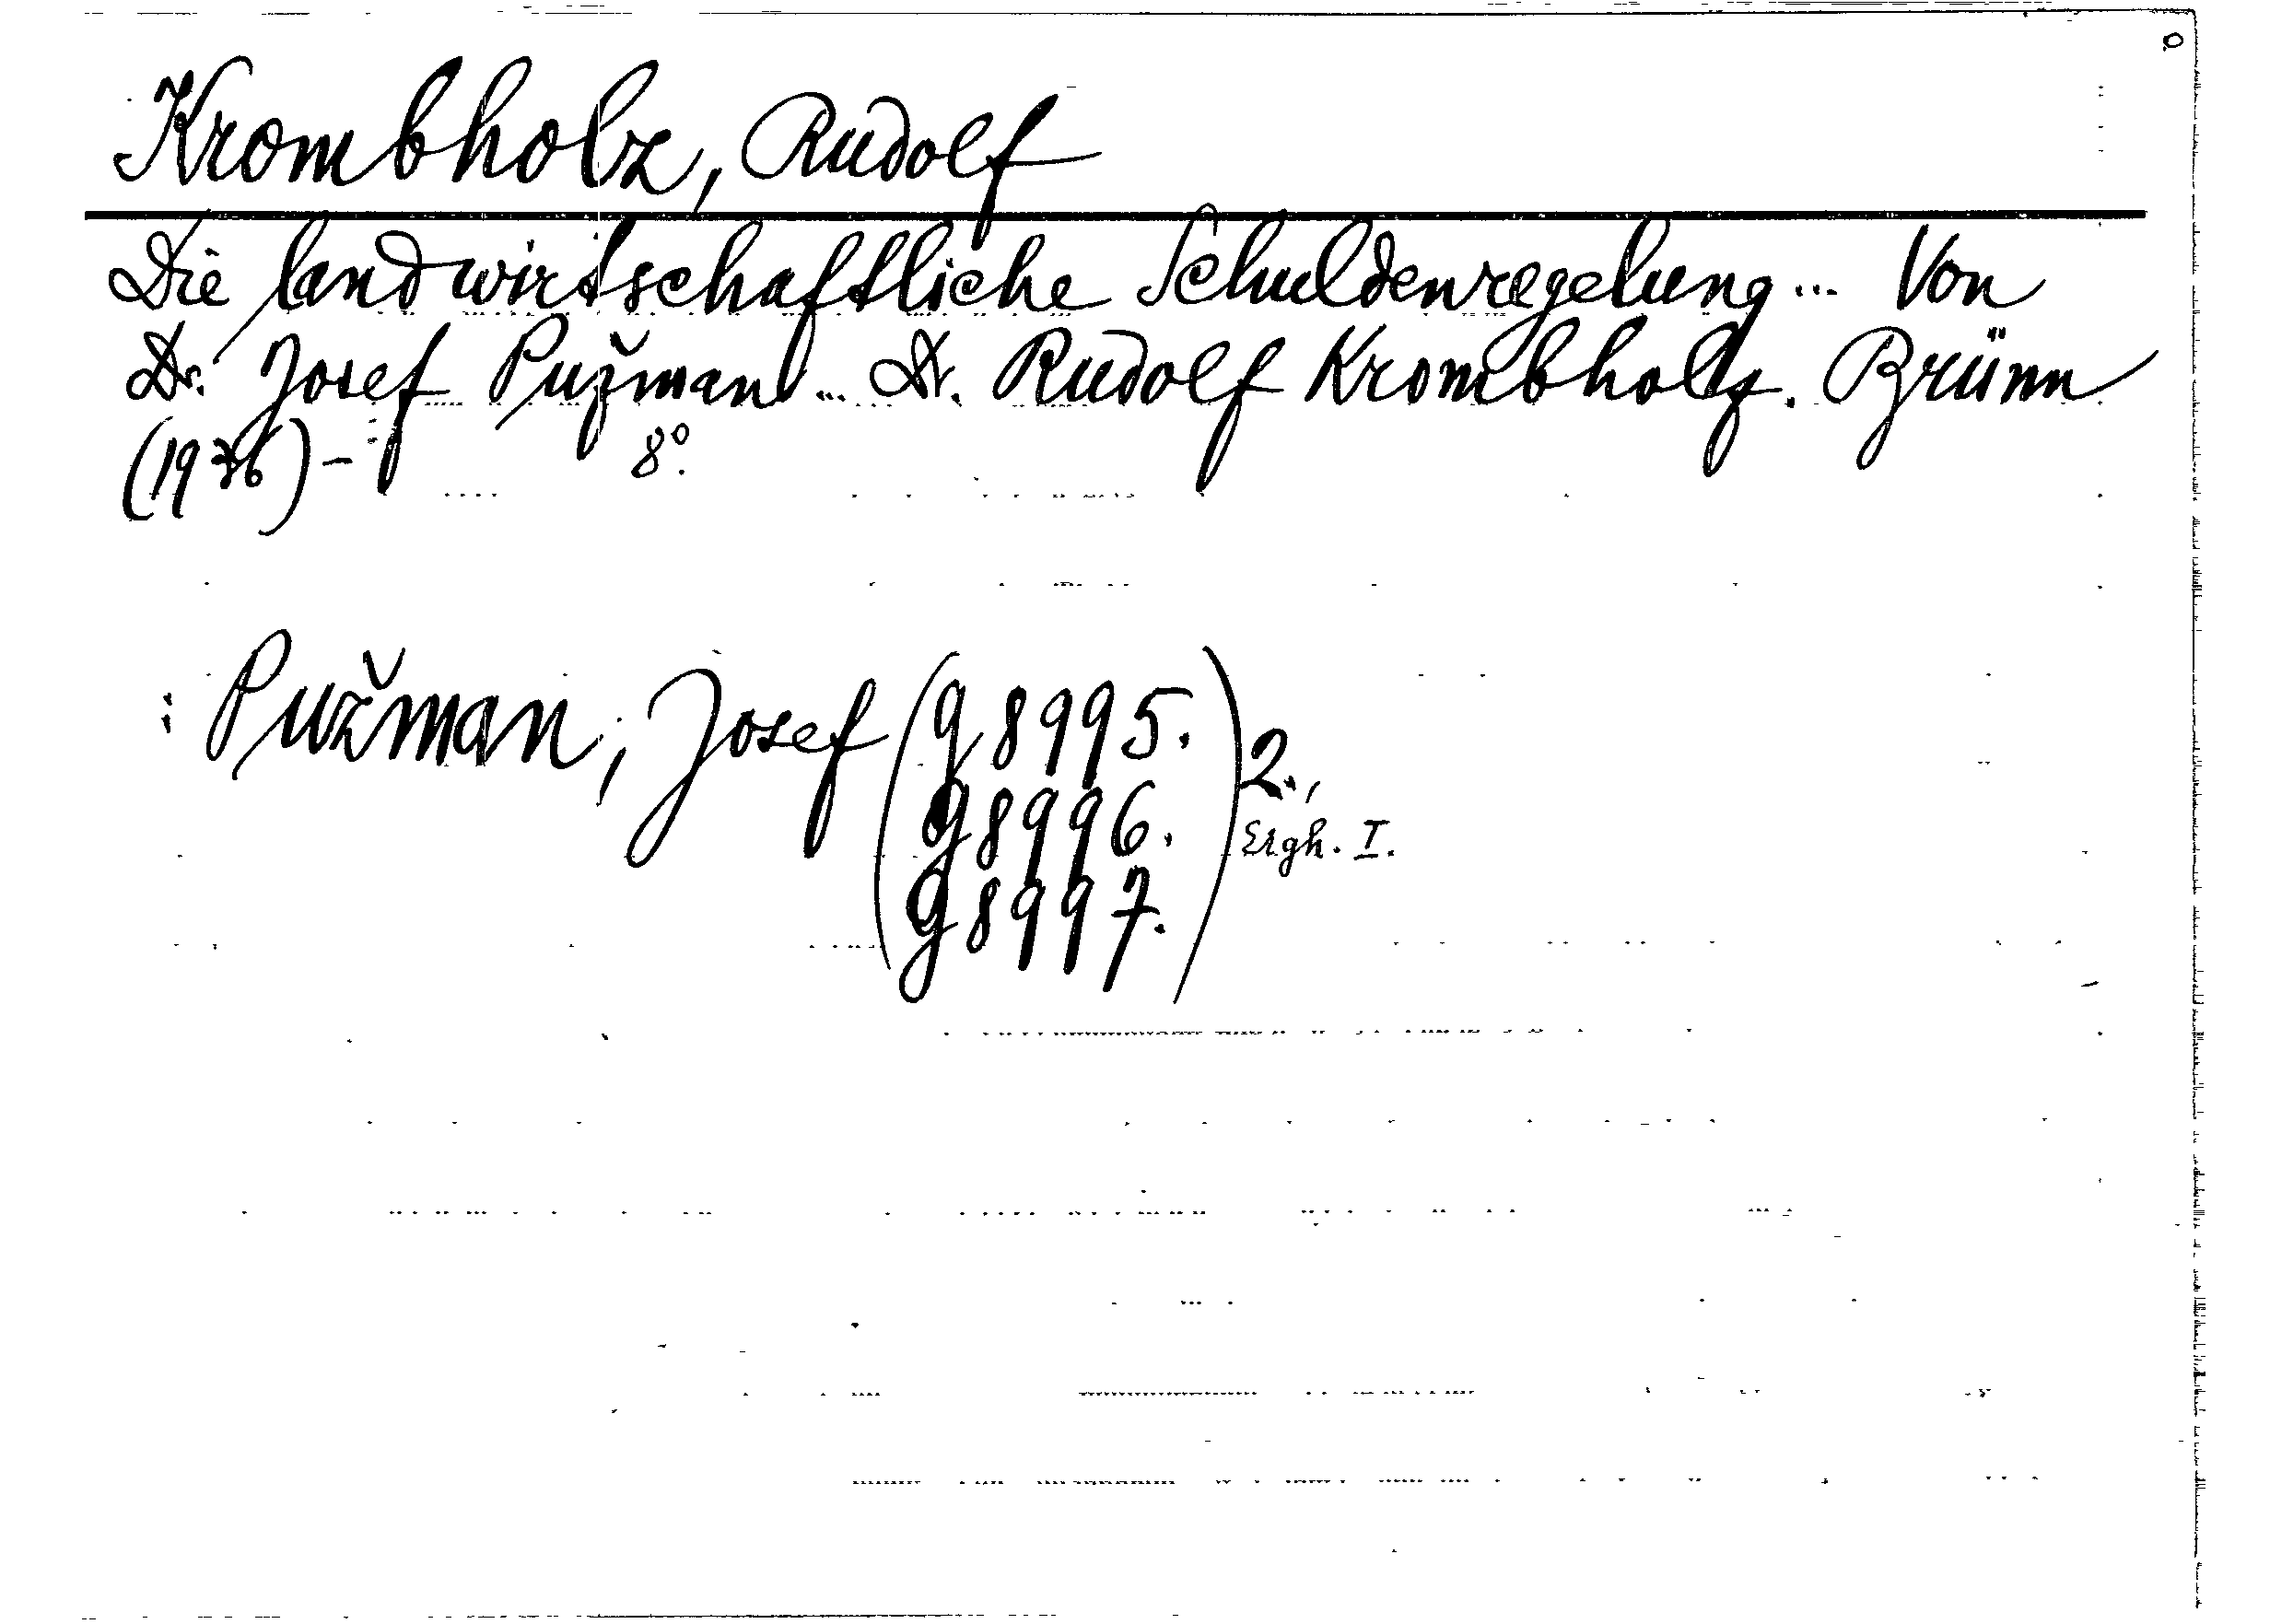 Krombholz, Rudolf
Die landwirtschaftliche Schuldenregelung... Von
Dr. Josef Pužman... Dr. Rudolf Krombholz. Brünn
(1936) - 8°.
: Pužman, Josef (g 8995.
g 8996.
g 8997.) 2.,
Ergh. I.